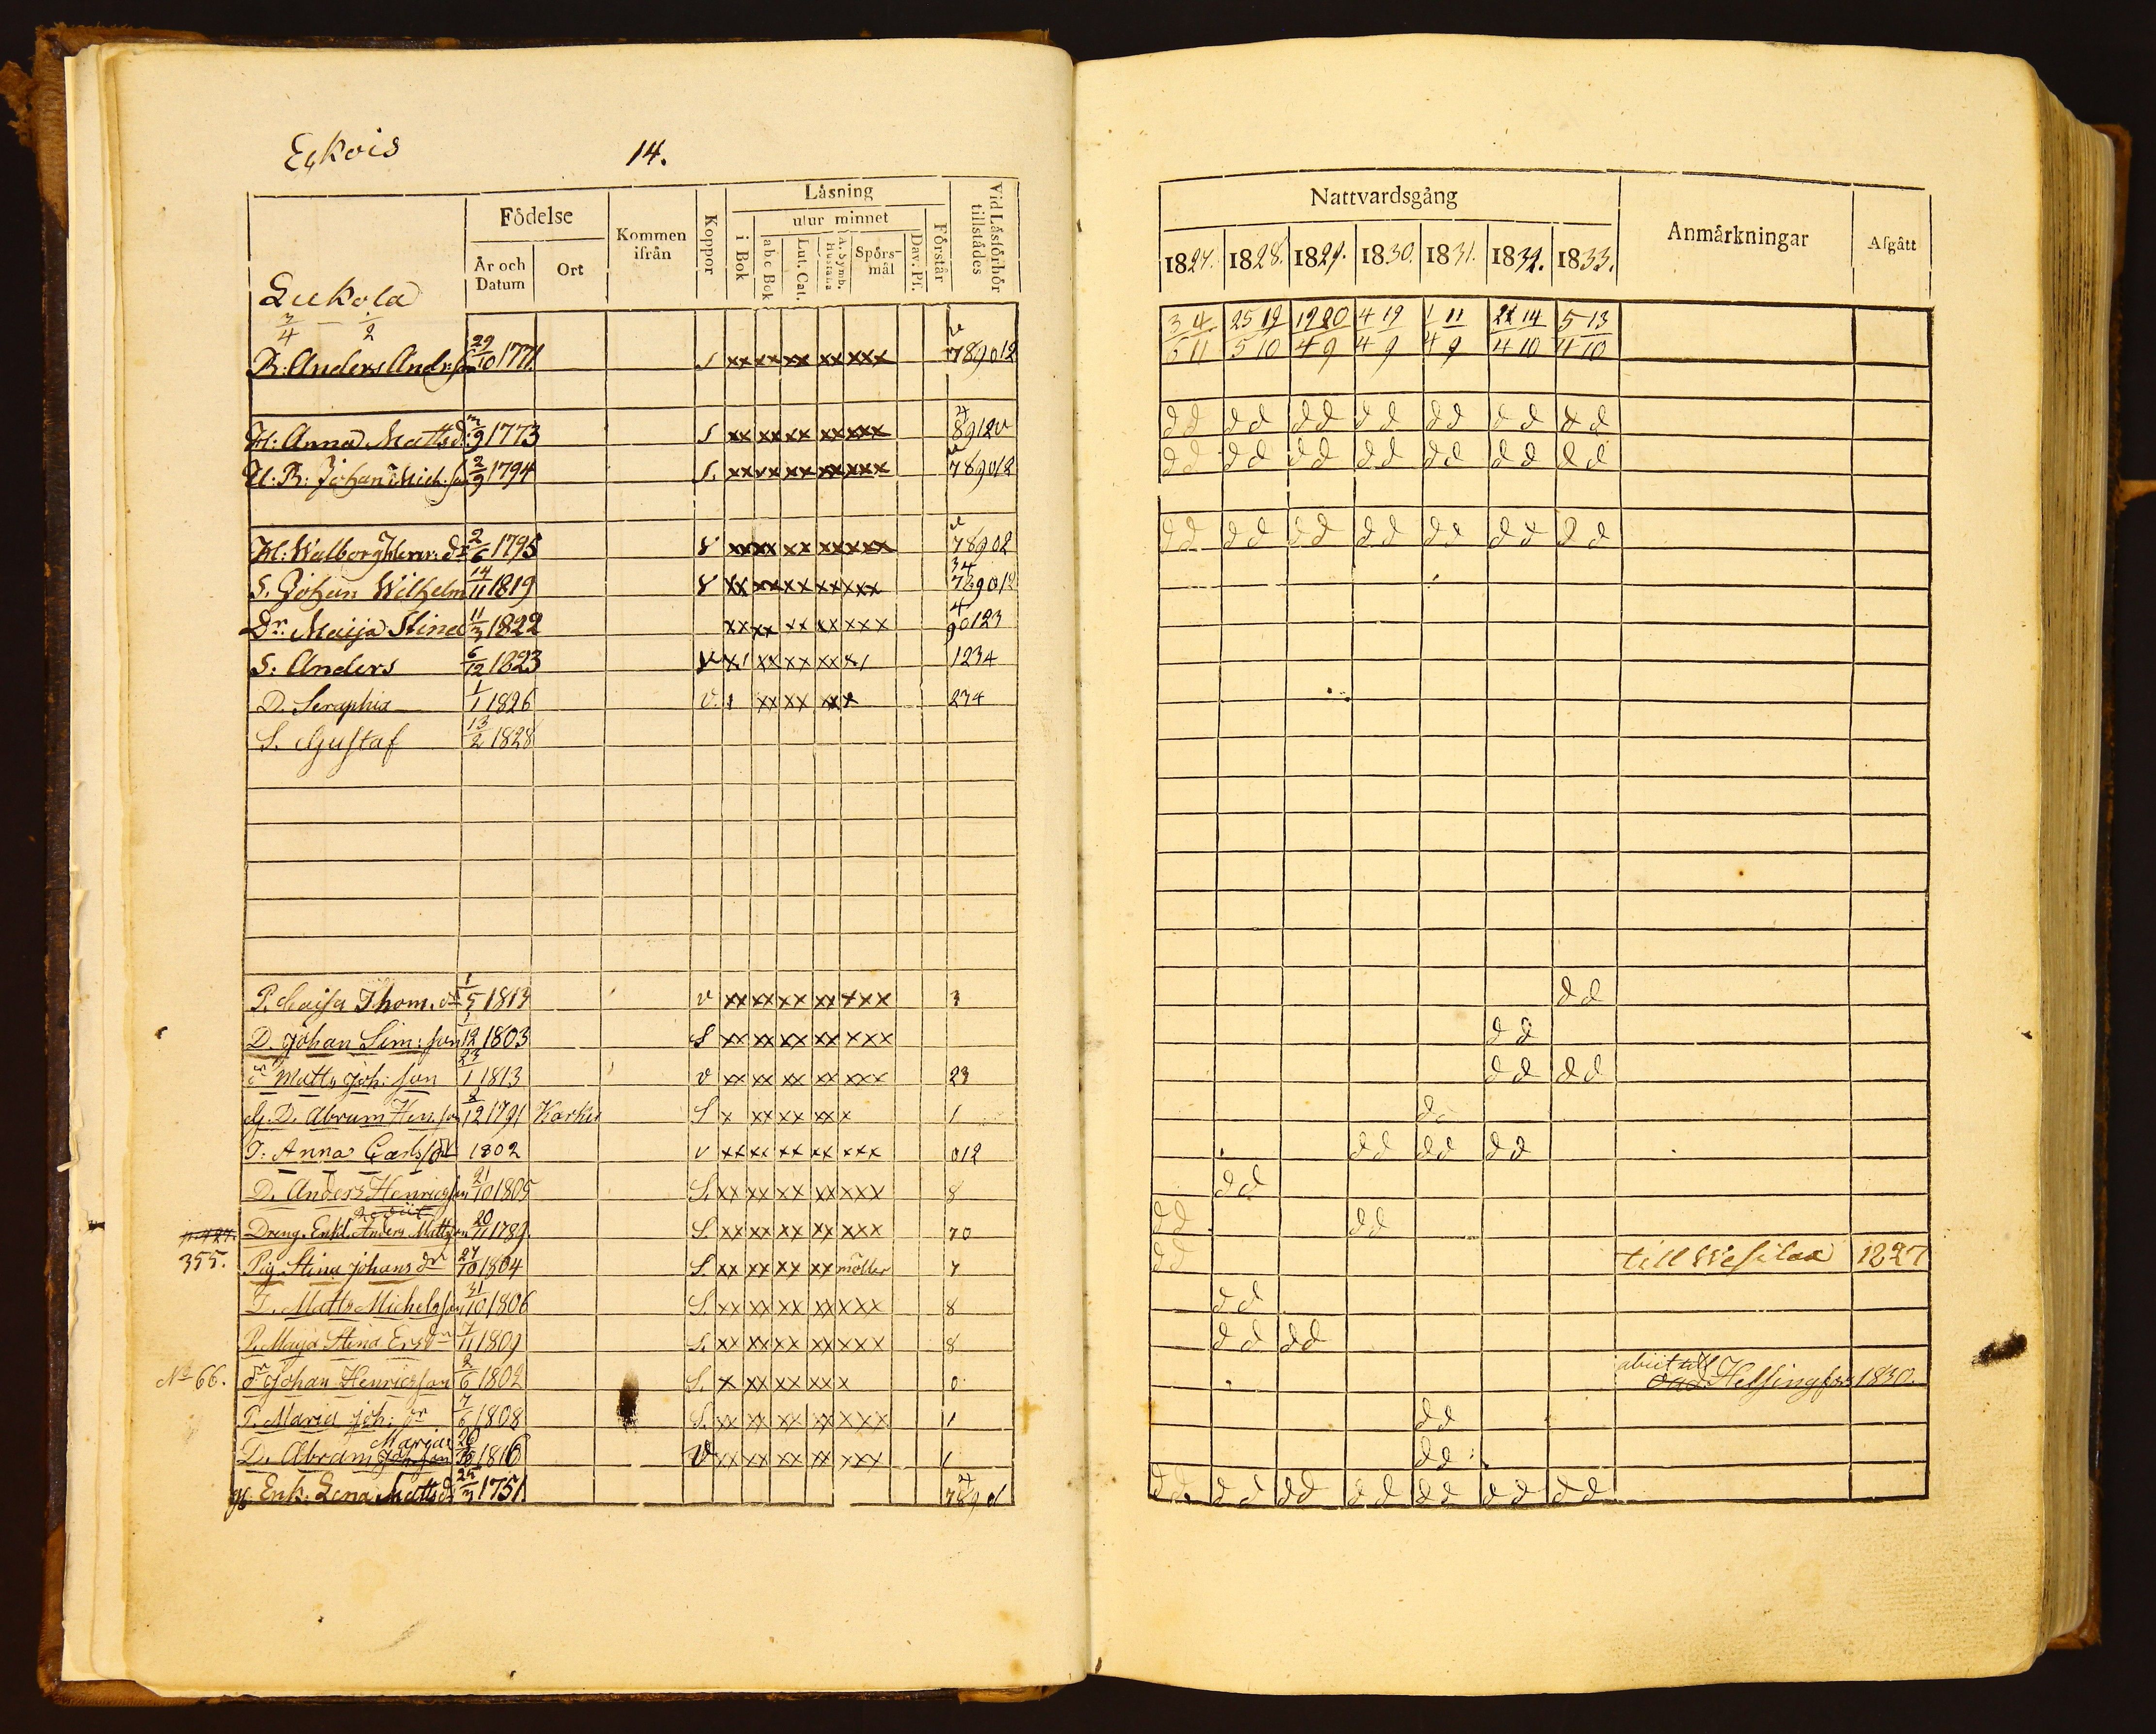 Eskois 14.
Födelse
Kommen ifrån
Koppor
Läsning
utur minnet
i Bok
abc Bok
Lut. Cat.
A. Symb. Hustafla
Spörsmål
Dav. Ps.
Förstår
Vid Läsförhör tillstådes
År och Datum
Ort
Lukola
3/4 — 1/2
B: Anders Andr:son 29/10 1771 S xx xx xx xx xxx 789012
H: Anna Mattsd: 1773 S xx xx xx xx xxx 8912
M: B: Johan Mich:son 2/9 1794 S. xx xx xx xx xxx 789012
H: Walborg Henr: dr 2/6 1795 V xx xx xx xx xxx 78902
S. Johan Wilhelm 14/11 1819 V xx xx xx xx xxx 789012 34
Dr. Maija Stina 11/3 1822 xx xx xx xx xxx 90123 4
S: Anders 6/12 1823 V x1 xx xx xx x1 1234
D. Seraphia 1/1 1826 v. 1 xx xx xx x 234
S. Gustaf 13/2 1828
P. Caisa Thom. dr 1/5 1813 v xx xx xx xx xxx 3
D. Johan Sim: son 1/12 1803 S xx xx xx xx xxx
dr Matts Joh: son 23/1 1813 v xx xx xx xx xxx 23
G. D. Abram Hen.son 12 1791 Karkis S x xx xx xx x 1
P: Anna Carlsdr 1802 v xx xx xx xx xxx 012
D. Anders Henricson 21/10 1805 S. xx xx xx xx xxx 8
Rediit
p. 427. Dreng. Enkl. Anders Mattson 20/11 1789. S. xx xx xx xx xxx 70
355. Pig. Stina Johans dr 27/10 1804 S. xx xx xx xx möller 7
D. Matts Michelsson 31/10 1806 S. xx xx xx xx xxx 8
P. Maja Stina Ersdr 7/11 1809 S. xx xx xx xx xxx 8
No 66. dr Johan Henricsson 2/6 1802 S. x xx xx xx x 0
P. Maria Joh: dr 7/6 1808 S. xx xx xx xx xxx 1
D. Abram Johan 26/10 1816 V xx xx xx xx xxx 1
Enk. Lena Mattsd. 25/3 1751. 78901
Nattvardsgång
Anmärkningar
Afgått
1827. 1828. 1829. 1830. 1831. 1832. 1833.
3/6 4/11 25/5 19/10 19/4 20/9 4/4 19/9 1/4 11/9 22/4 14/10 5/4 13/10
dd dd dd dd dd dd dd
dd dd dd dd dd dd dd
dd dd dd dd dd dd dd
dd
dd
dd dd
d
dd dd dd
dd
dd dd
dd till Wesilax 1827
dd
dd dd
abiit till Helsingfors 1830.
dd
dd
dd dd dd dd dd dd dd